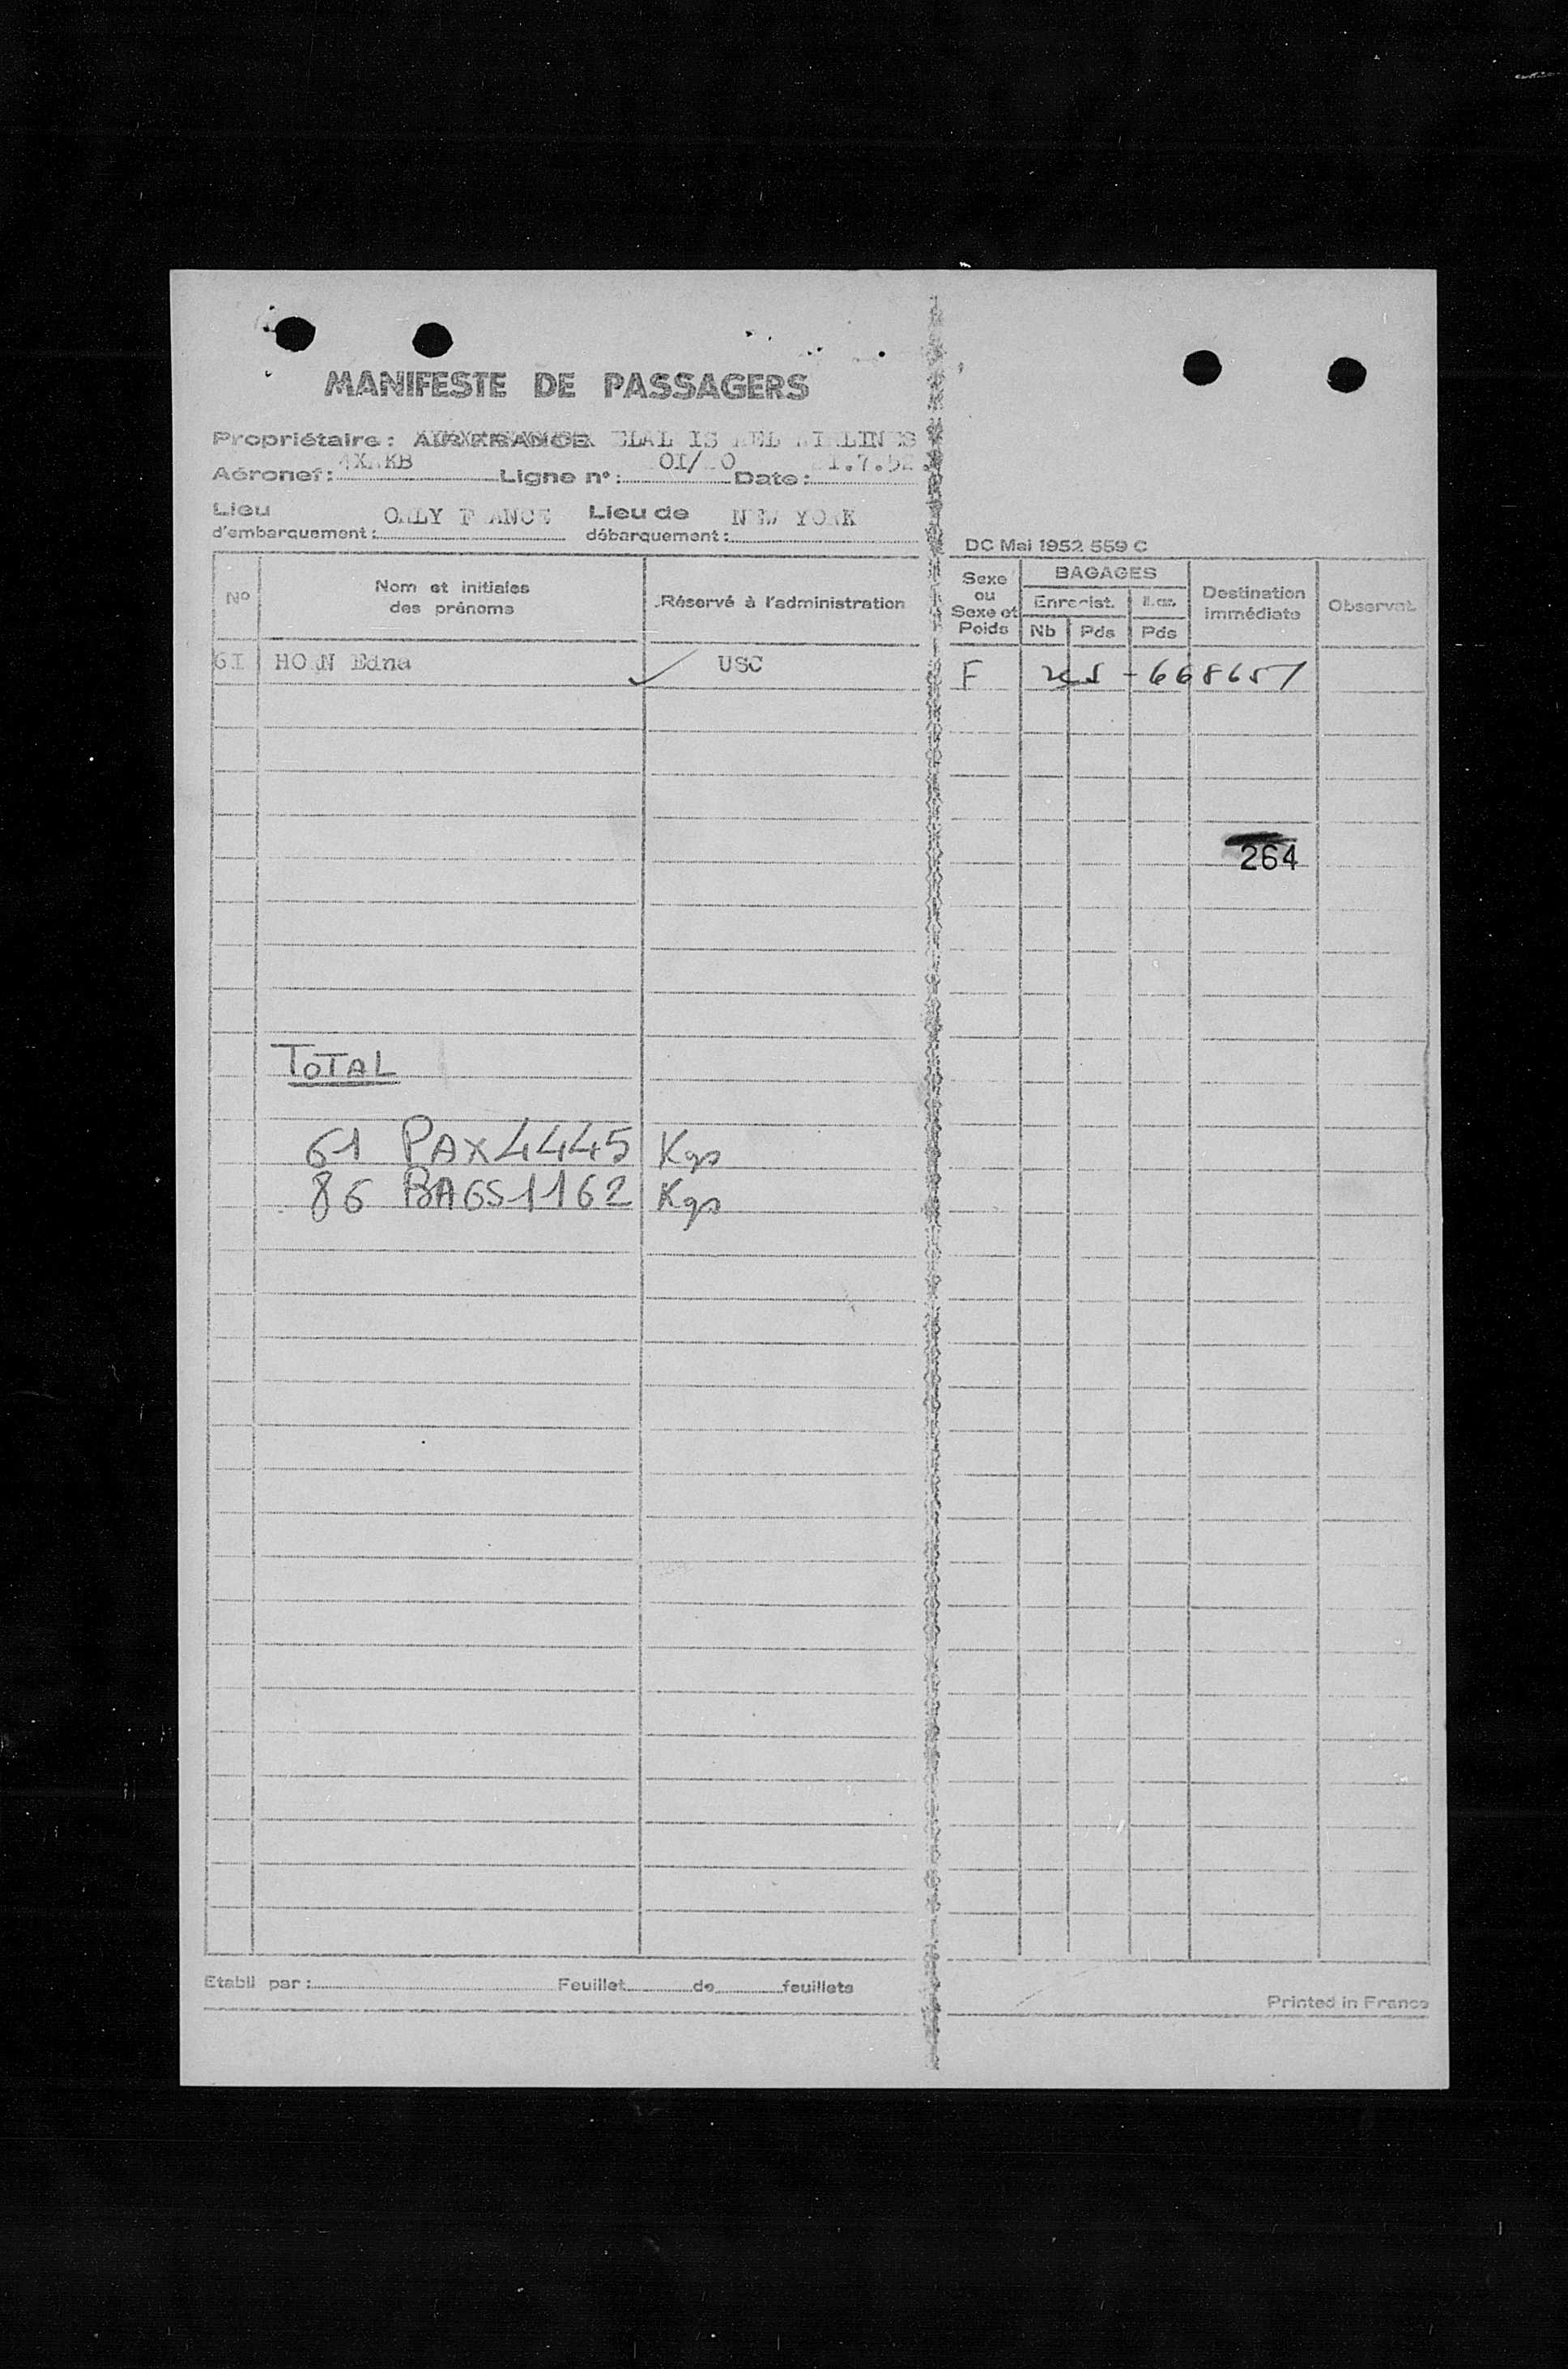 MANIFESTE DE PASSAGERS
Propriétaire: AIR FRANCE ELAL IS AEL AIRLINES
Aéronef: 4X.KB Ligne n°: 01/ 0 Date: 1.7.52
Lieu d'embarquement: ORLY FRANCE Lieu de débarquement: NEW YORK
DC Mai 1952 559 C
N° Nom et initiales des prénoms Réservé à l'administration Sexe ou Sexe et Poids BAGAGES Enregist. Nb Pds Pds Destination immédiate Observat.
61 HORN Edna USC F 668651
264
TOTAL
61 PAX 4445 Kgs
86 BAGS 1162 Kgs
Etabli par: Feuillet de feuillets
Printed in France